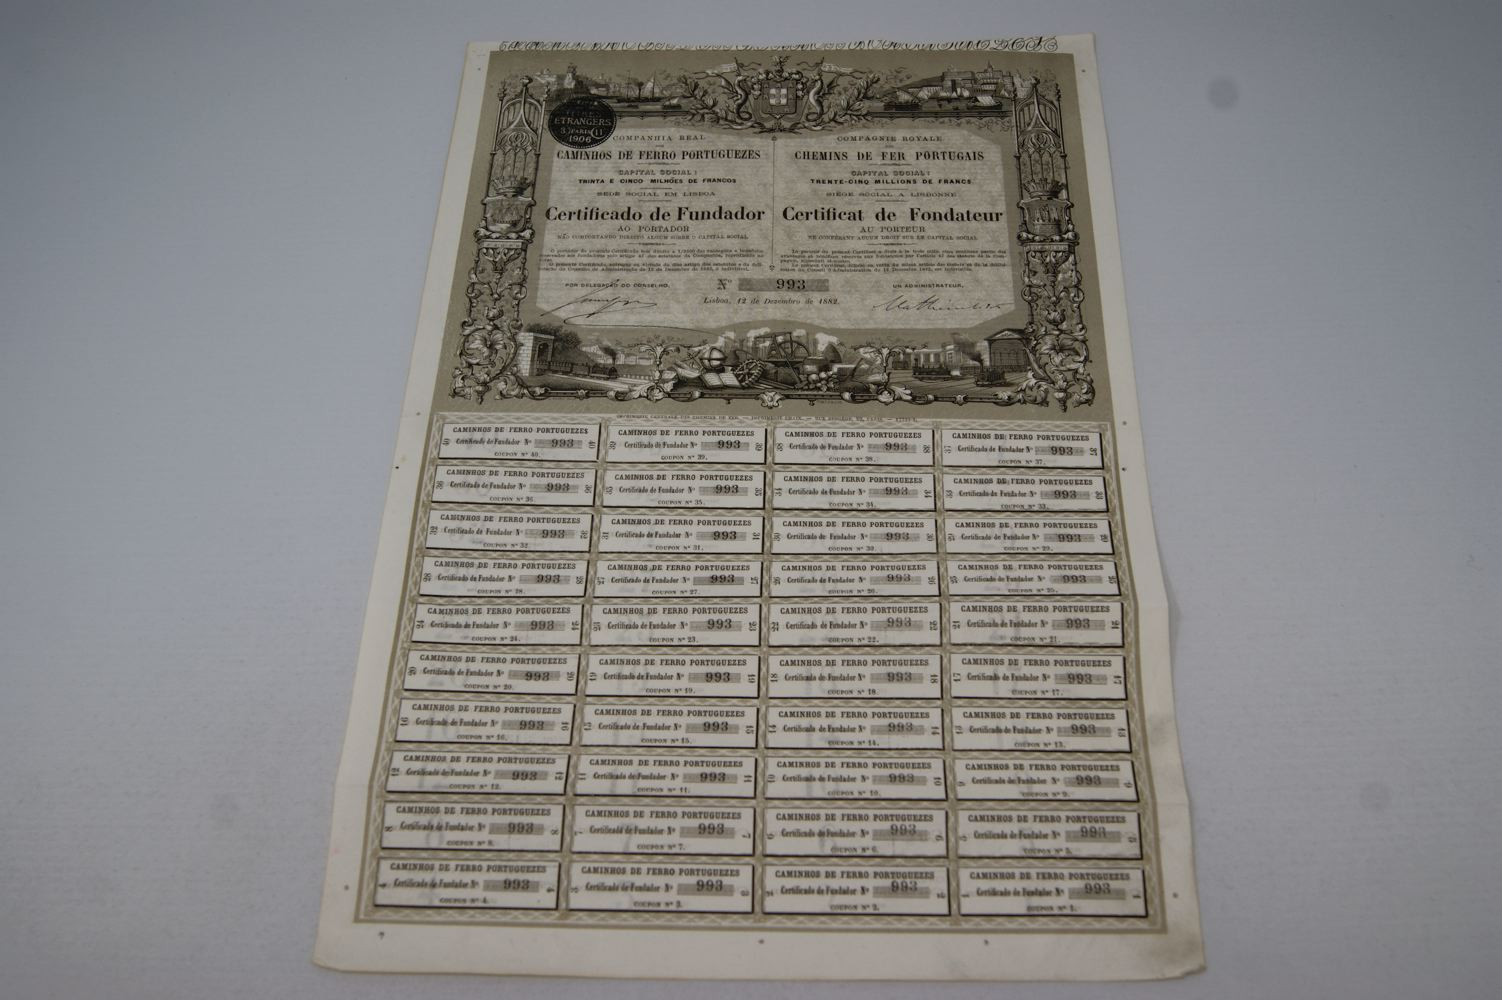 ETRANGERS
PARIS
1906
COMPANHIA REAL
DOS
CAMINHOS DE FERRO PORTUGUEZES
CAPITAL SOCIAL:
TRINTA E CINCO MILHÕES DE FRANCOS
SEDE SOCIAL EM LISBOA
Certificado de Fundador
AO PORTADOR
NÃO COMPORTANDO DIREITO ALGUM SOBRE O CAPITAL SOCIAL
POR DELEGAÇÃO DO CONSELHO,
COMPAGNIE ROYALE
DES
CHEMINS DE FER PORTUGAIS
CAPITAL SOCIAL:
TRENTE-CINQ MILLIONS DE FRANCS
SIÈGE SOCIAL A LISBONNE
Certificat de Fondateur
AU PORTEUR
NE CONFÉRANT AUCUN DROIT SUR LE CAPITAL SOCIAL
UN ADMINISTRATEUR,
Nº 993
Lisboa, 12 de Dezembro de 1882.
IMPRIMERIE CENTRALE DES CHEMINS DE FER. — IMPRIMERIE CHAIX. — RUE BERGÈRE, 20, PARIS.
CAMINHOS DE FERRO PORTUGUEZES
40 Certificado de Fundador Nº 993 40
COUPON Nº 40.
CAMINHOS DE FERRO PORTUGUEZES
39 Certificado de Fundador Nº 993 39
COUPON Nº 39.
CAMINHOS DE FERRO PORTUGUEZES
38 Certificado de Fundador Nº 993 38
COUPON Nº 38.
CAMINHOS DE FERRO PORTUGUEZES
37 Certificado de Fundador Nº 993 37
COUPON Nº 37.
CAMINHOS DE FERRO PORTUGUEZES
36 Certificado de Fundador Nº 993 36
COUPON Nº 36.
CAMINHOS DE FERRO PORTUGUEZES
35 Certificado de Fundador Nº 993 35
COUPON Nº 35.
CAMINHOS DE FERRO PORTUGUEZES
34 Certificado de Fundador Nº 993 34
COUPON Nº 34.
CAMINHOS DE FERRO PORTUGUEZES
33 Certificado de Fundador Nº 993 33
COUPON Nº 33.
CAMINHOS DE FERRO PORTUGUEZES
32 Certificado de Fundador Nº 993 32
COUPON Nº 32.
CAMINHOS DE FERRO PORTUGUEZES
31 Certificado de Fundador Nº 993 31
COUPON Nº 31.
CAMINHOS DE FERRO PORTUGUEZES
30 Certificado de Fundador Nº 993 30
COUPON Nº 30.
CAMINHOS DE FERRO PORTUGUEZES
29 Certificado de Fundador Nº 993 29
COUPON Nº 29.
CAMINHOS DE FERRO PORTUGUEZES
28 Certificado de Fundador Nº 993 28
COUPON Nº 28.
CAMINHOS DE FERRO PORTUGUEZES
27 Certificado de Fundador Nº 993 27
COUPON Nº 27.
CAMINHOS DE FERRO PORTUGUEZES
26 Certificado de Fundador Nº 993 26
COUPON Nº 26.
CAMINHOS DE FERRO PORTUGUEZES
25 Certificado de Fundador Nº 993 25
COUPON Nº 25.
CAMINHOS DE FERRO PORTUGUEZES
24 Certificado de Fundador Nº 993 24
COUPON Nº 24.
CAMINHOS DE FERRO PORTUGUEZES
23 Certificado de Fundador Nº 993 23
COUPON Nº 23.
CAMINHOS DE FERRO PORTUGUEZES
22 Certificado de Fundador Nº 993 22
COUPON Nº 22.
CAMINHOS DE FERRO PORTUGUEZES
21 Certificado de Fundador Nº 993 21
COUPON Nº 21.
CAMINHOS DE FERRO PORTUGUEZES
20 Certificado de Fundador Nº 993 20
COUPON Nº 20.
CAMINHOS DE FERRO PORTUGUEZES
19 Certificado de Fundador Nº 993 19
COUPON Nº 19.
CAMINHOS DE FERRO PORTUGUEZES
18 Certificado de Fundador Nº 993 18
COUPON Nº 18.
CAMINHOS DE FERRO PORTUGUEZES
17 Certificado de Fundador Nº 993 17
COUPON Nº 17.
CAMINHOS DE FERRO PORTUGUEZES
16 Certificado de Fundador Nº 993 16
COUPON Nº 16.
CAMINHOS DE FERRO PORTUGUEZES
15 Certificado de Fundador Nº 993 15
COUPON Nº 15.
CAMINHOS DE FERRO PORTUGUEZES
14 Certificado de Fundador Nº 993 14
COUPON Nº 14.
CAMINHOS DE FERRO PORTUGUEZES
13 Certificado de Fundador Nº 993 13
COUPON Nº 13.
CAMINHOS DE FERRO PORTUGUEZES
12 Certificado de Fundador Nº 993 12
COUPON Nº 12.
CAMINHOS DE FERRO PORTUGUEZES
11 Certificado de Fundador Nº 993 11
COUPON Nº 11.
CAMINHOS DE FERRO PORTUGUEZES
10 Certificado de Fundador Nº 993 10
COUPON Nº 10.
CAMINHOS DE FERRO PORTUGUEZES
9 Certificado de Fundador Nº 993 9
COUPON Nº 9.
CAMINHOS DE FERRO PORTUGUEZES
8 Certificado de Fundador Nº 993 8
COUPON Nº 8.
CAMINHOS DE FERRO PORTUGUEZES
7 Certificado de Fundador Nº 993 7
COUPON Nº 7.
CAMINHOS DE FERRO PORTUGUEZES
6 Certificado de Fundador Nº 993 6
COUPON Nº 6.
CAMINHOS DE FERRO PORTUGUEZES
5 Certificado de Fundador Nº 993 5
COUPON Nº 5.
CAMINHOS DE FERRO PORTUGUEZES
4 Certificado de Fundador Nº 993 4
COUPON Nº 4.
CAMINHOS DE FERRO PORTUGUEZES
3 Certificado de Fundador Nº 993 3
COUPON Nº 3.
CAMINHOS DE FERRO PORTUGUEZES
2 Certificado de Fundador Nº 993 2
COUPON Nº 2.
CAMINHOS DE FERRO PORTUGUEZES
1 Certificado de Fundador Nº 993 1
COUPON Nº 1.